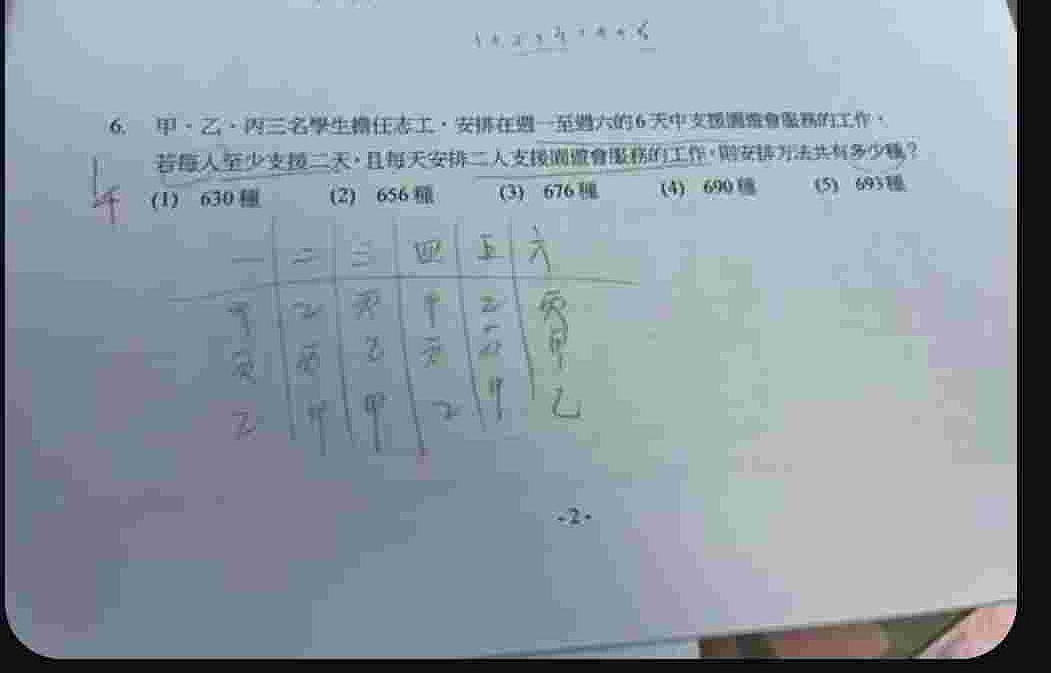 6. 甲、乙、丙三名學生擔任志工，安排在週一至週六的6天中支援園遊會服務的工作，
若每人至少支援二天，且每天安排二人支援園遊會服務的工作，則安排方法共有多少種？
(1) 630種 (2) 656種 (3) 676種 (4) 690種 (5) 693種
一 二 三 四 五 六
甲 乙 丙 甲 乙 丙
丙 丙 乙 丙 丙 甲
乙 甲 甲 乙 甲 乙
-2-